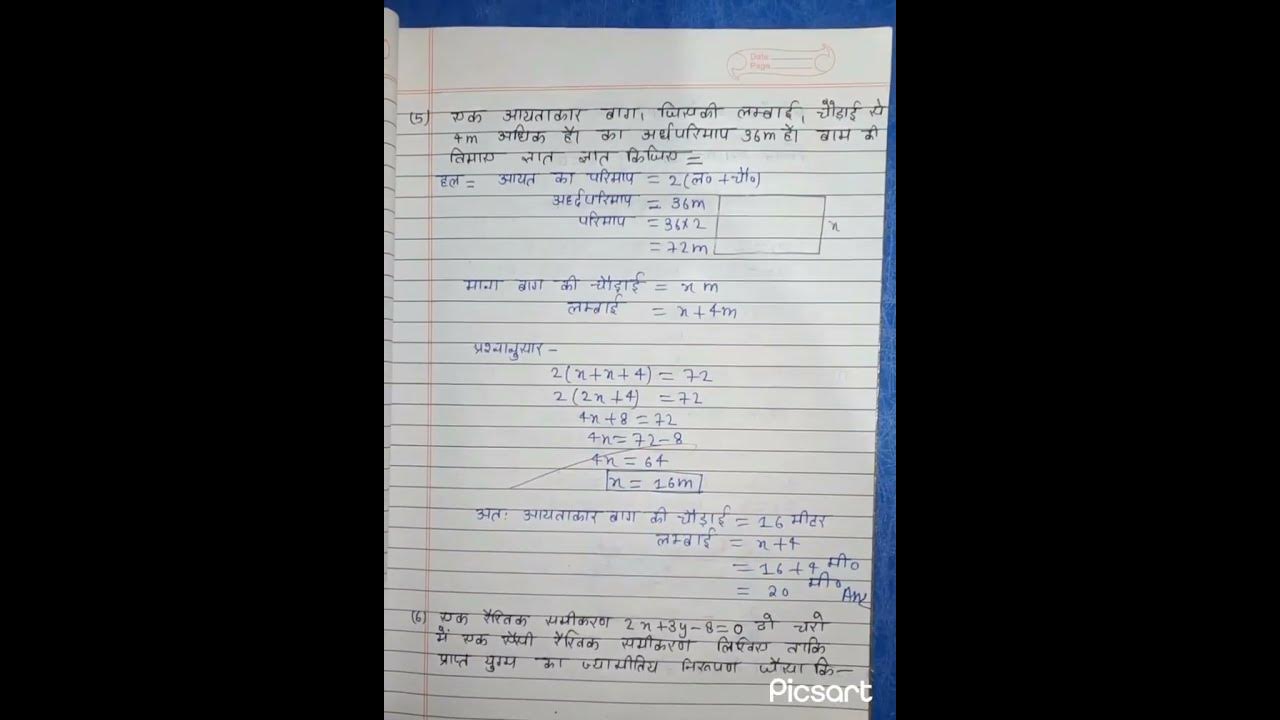 Date
Page
(5) एक आयताकार बाग, जिसकी लम्बाई, चौड़ाई से
4m अधिक है। का अर्धपरिमाप 36m है। बाग की
विमाए ज्ञात ज्ञात किजिए =
हल = आयत का परिमाप = 2(ल० + चौ०)
अर्ध्दपरिमाप = 36m
परिमाप = 36×2
x
= 72m
माना बाग की चौड़ाई = x m
लम्बाई = x + 4m
प्रश्नानुसार -
2(x+x+4) = 72
2(2x+4) = 72
4x+8 = 72
4x = 72-8
4x = 64
x = 16m
अतः आयताकार बाग की चौड़ाई = 16 मीटर
लम्बाई = x+4
= 16+4 मी०
= 20 मी० Ans
(6) एक रैखिक समीकरण 2x+3y-8=0 दो चरो
में एक ऐसी रैखिक समीकरण लिखिए ताकि
प्राप्त युग्म का ज्यामीतिय निरूपण जैसा कि-
Picsart